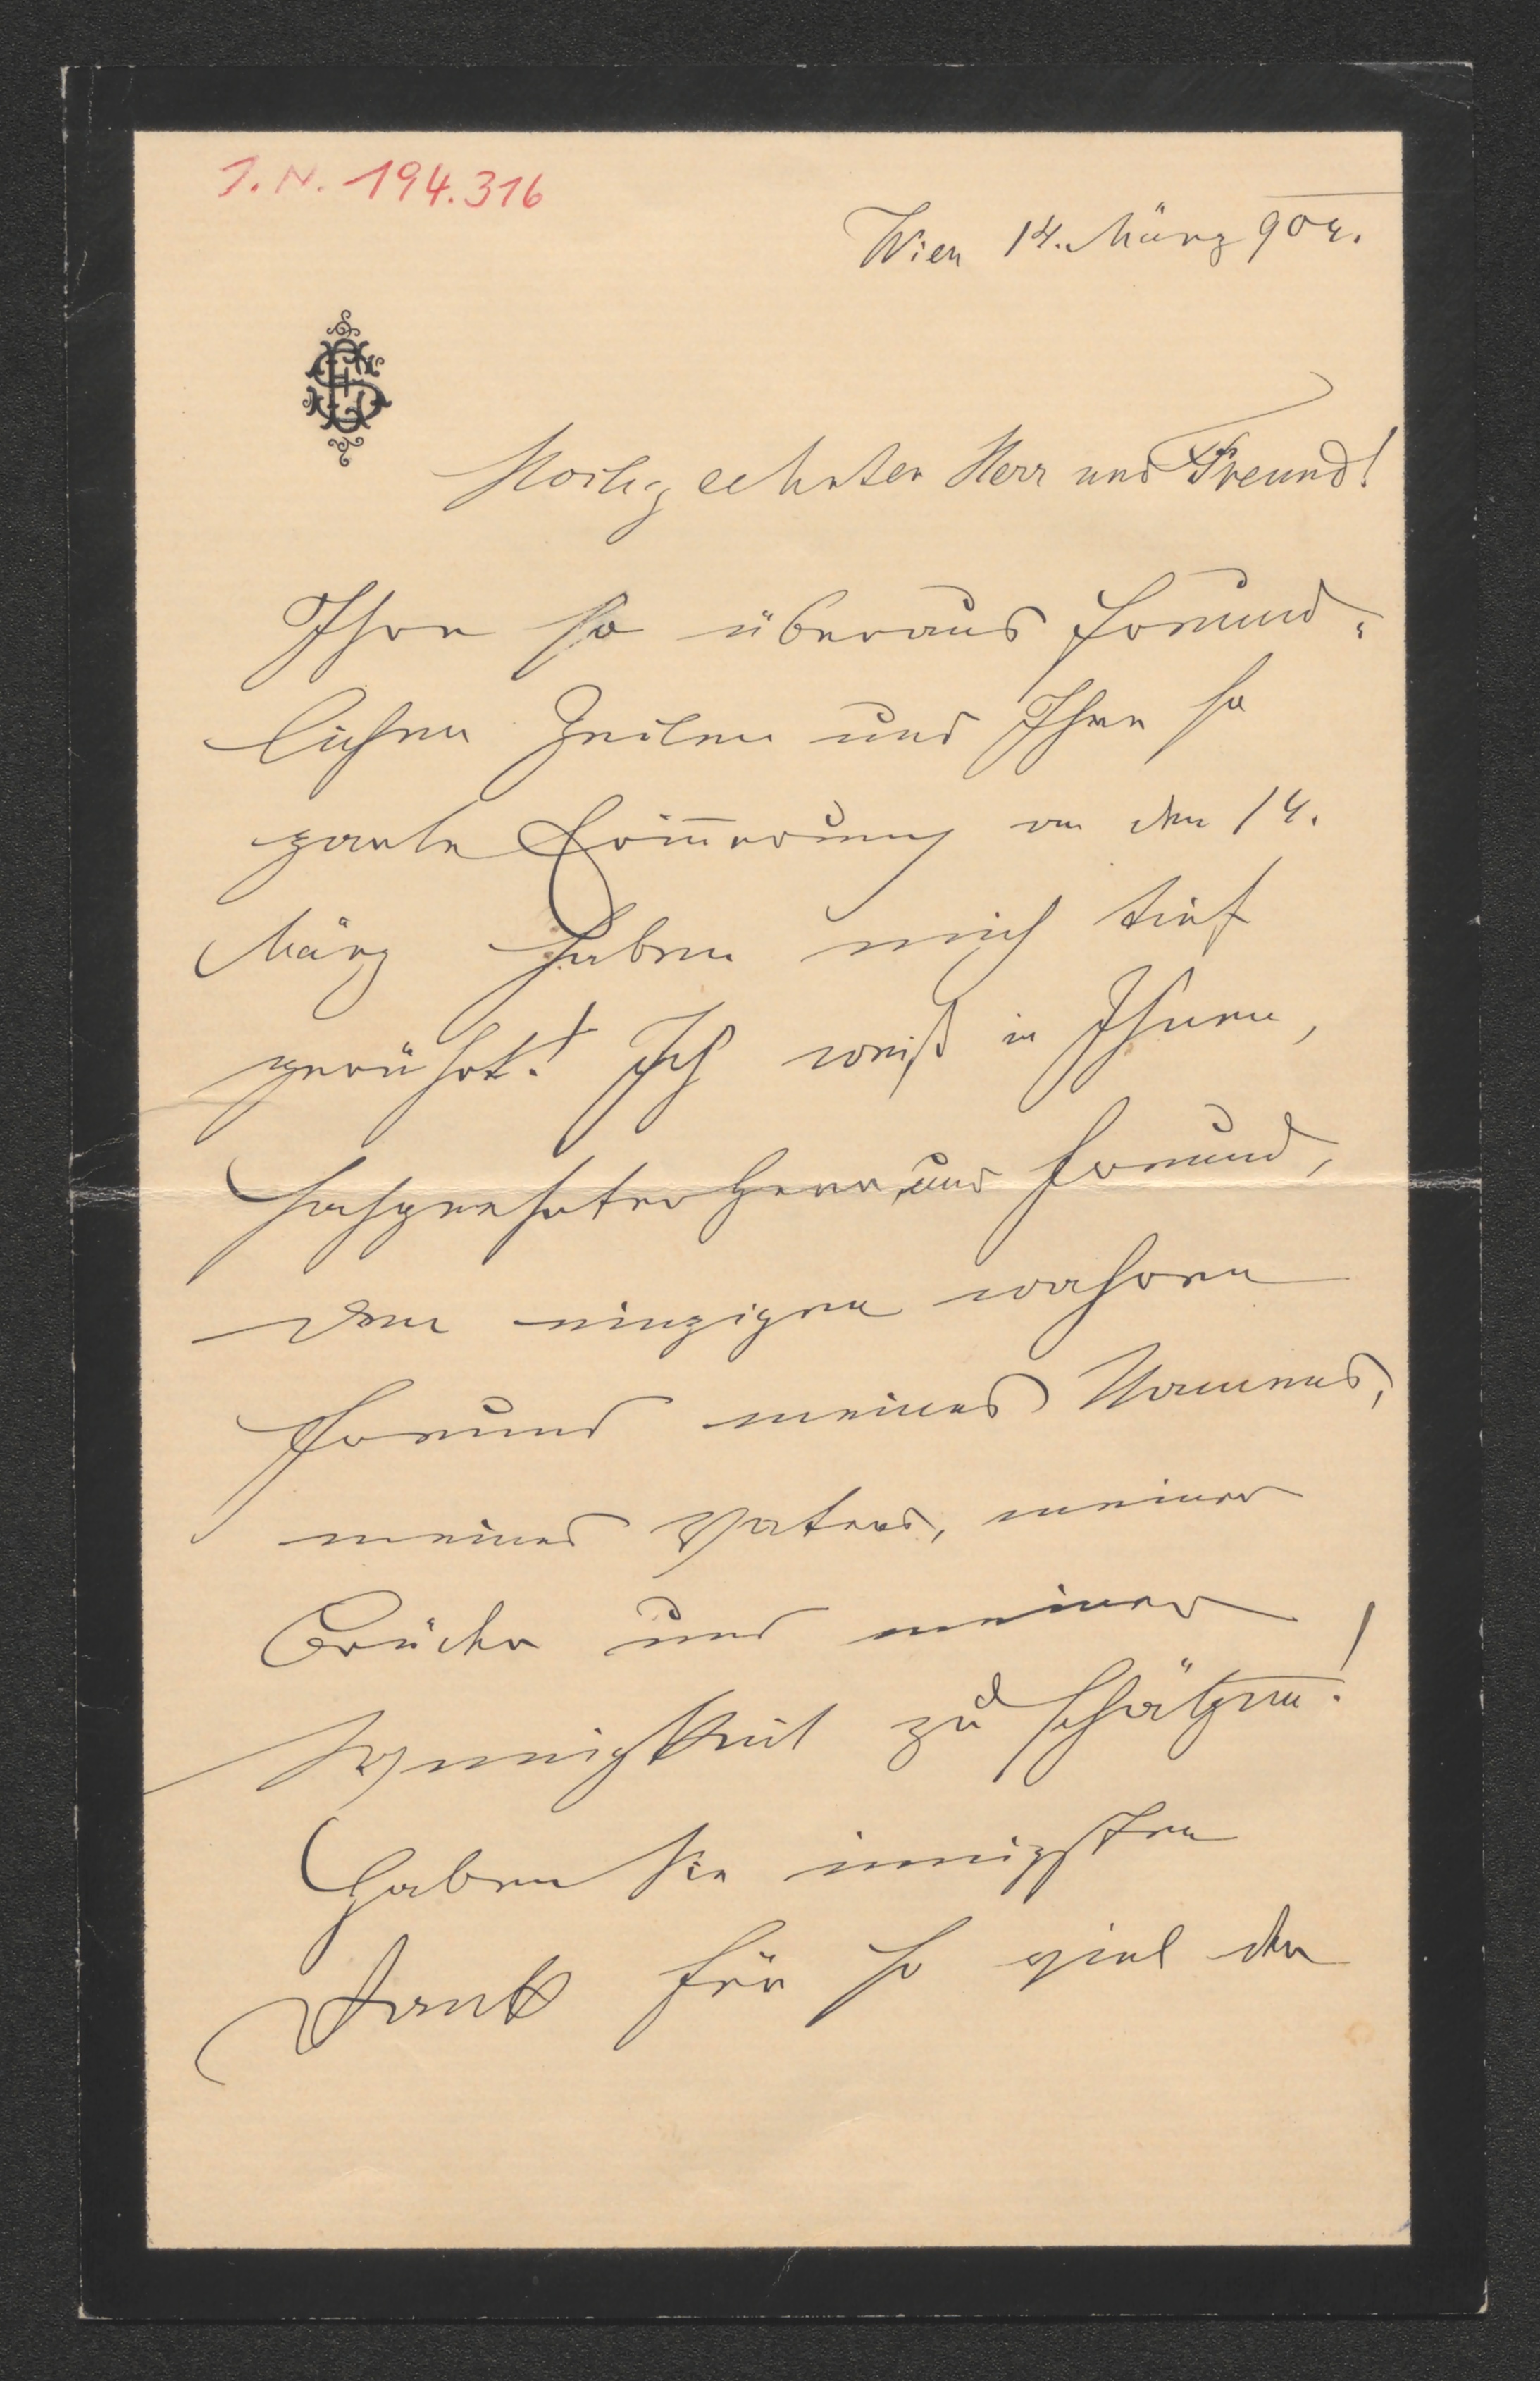 I. N. 194.316
Wien 14. März 904.
Hochgeehrter Herr und Freund!
Ihre so überaus freund-
lichen Zeilen und Ihre so
zarte Erinnerung an den 14.
März haben mich tief
gerührt! Ich weiß in Ihnen,
hochgeehrter Herr und Freund,
den einzigen wahren
Freund meines Namens,
meines Vaters, meiner
Brüder und meiner
Wenigkeit zu schätzen!
Haben Sie innigsten
Dank für so viel der